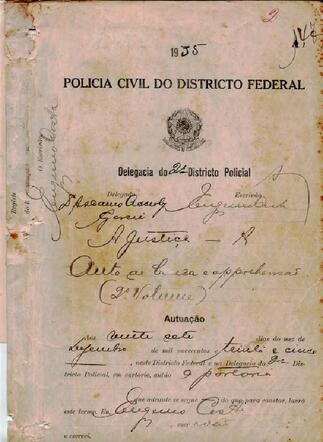 2
1935
POLICIA CIVIL DO DISTRICTO FEDERAL
Delegacia do 2º Districto Policial
Delegado Escrivão
A Justiça — A
Auto de busca e apprehensão
(2º Volume)
Autuação
Aos vinte sete dias do mez de
Dezembro de mil novecentos e trinta e cinco
, neste Districto Federal e na Delegacia do 2º Dis-
tricto Policial, em cartorio, autúo a portaria
que adeante se segue; do que, para constar, lavro
este termo. Eu, Eugenio Costa
escrivão
o escrevi.
O Escrivão
Eugenio Costa